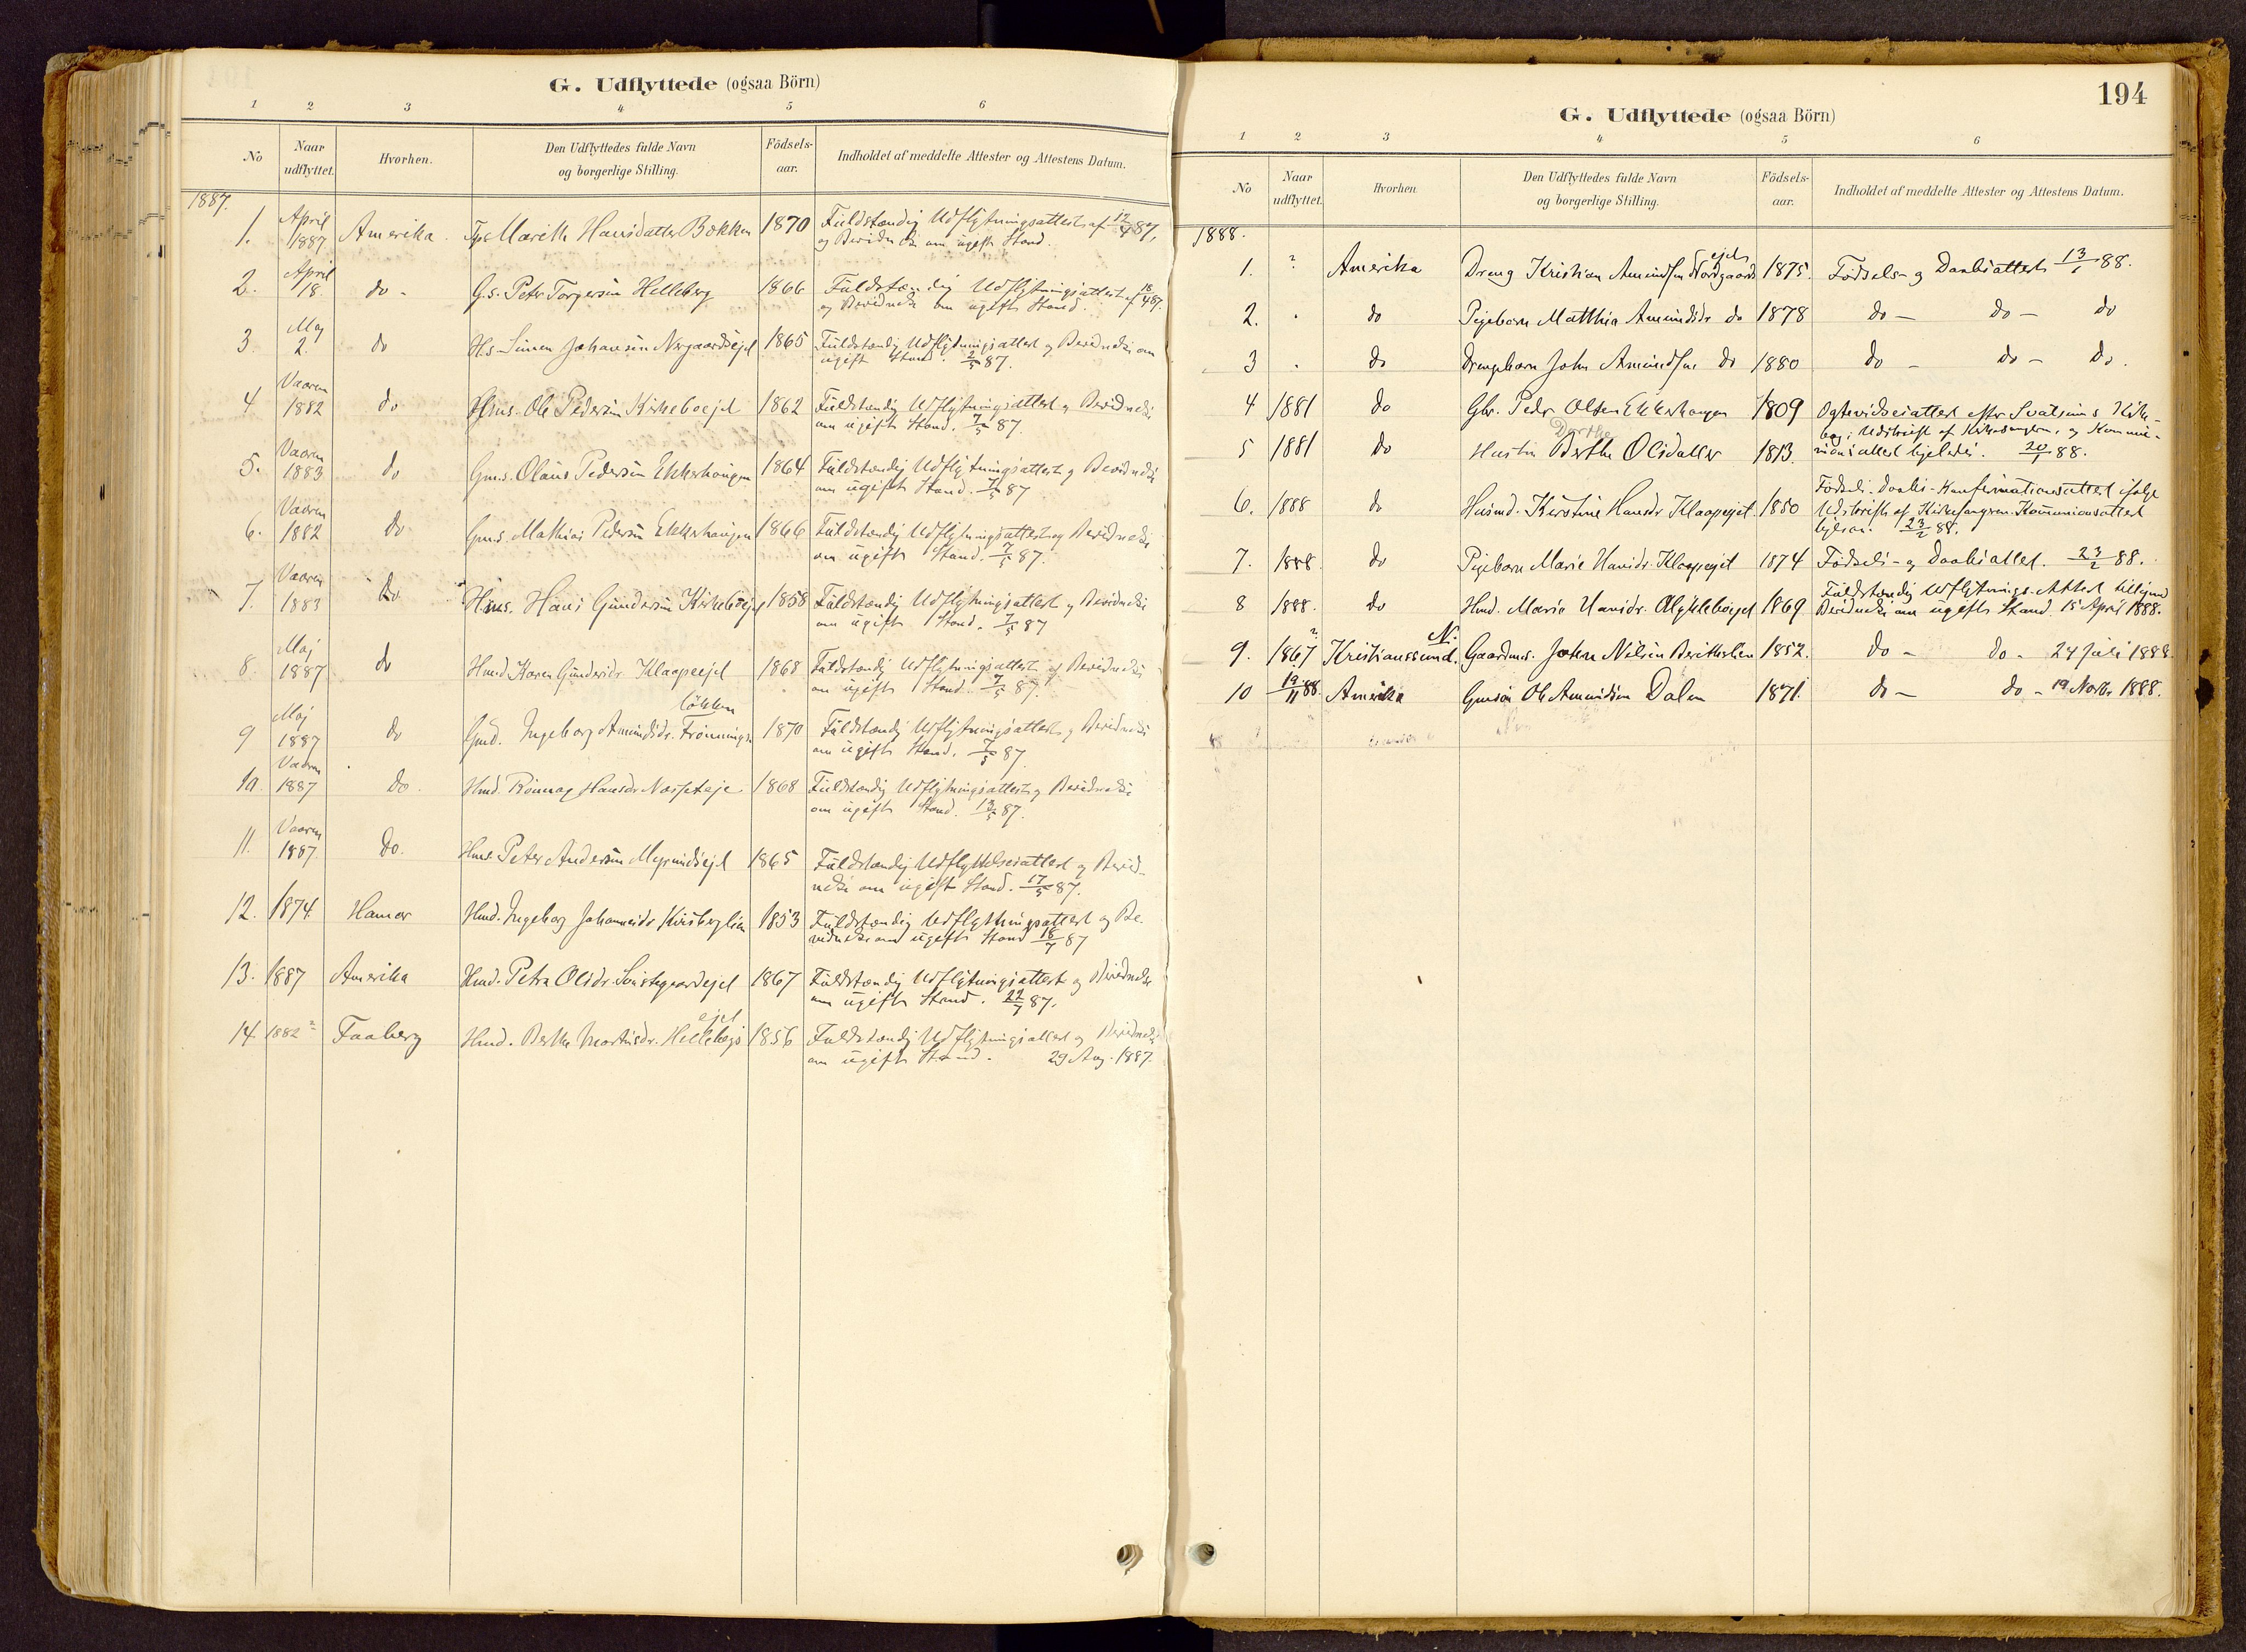 G. Udflyttede (ogsaa Börn)
1 2 3 4 5 6
No Naar udflyttet. Hvorhen. Den Udflyttedes fulde Navn og borgerlige Stilling. Födsels-aar. Indholdet af meddelte Attester og Attestens Datum.
1887.
1. April 1887 Amerika. Marith Hansdatter Bakken 1870 Fuldstændig Udflytningsattest af 12/4 87,
og om ugift Stand.
2. April 18. do - G.s. Peter Torgersen Helleberg 1866 Fuldstændig Udflytningsattest af 18/4 87.
og om ugift Stand.
3. Maj 2. do H.s. Simen Johansen 1865 Fuldstændig Udflytningsattest og om
ugift Stand. 2/5 87.
4 Vaaren 1882 do Hms. Ole Pedersen Kirkeboejet 1862 Fuldstændig Udflytningsattest og
om ugift Stand. 7/5 87.
5. Vaaren 1883 do Gm.s. Olaus Pedersen Ekkerhaugen 1864 Fuldstændig Udflytningsattest og
om ugift Stand. 7/5 87
6. Vaaren 1882 do Gm.s. Mathias Pedersen Ekkerhaugen 1866 Fuldstændig Udflytningsattest og
om ugift Stand. 7/5 87.
7. Vaaren 1883 do Hms. Hans Gundersen 1858 Fuldstændig Udflytningsattest og
om ugift Stand. 7/5 87
8. Maj 1887 do Hmd. Karen Gundersdr. Klaapeejet 1868 Fuldstændig Udflytningsattest og
om ugift Stand. 7/5 87.
løkken
9 Maj 1887 do Gmd. Ingeborg Amundsdr. 1870 Fuldstændig Udflytningsattest og
om ugift Stand. 7/5 87.
10. Vaaren 1887 do. Hmd. Rønnaug Hansdr. 1868 Fuldstændig Udflytningsattest og
om ugift Stand. 13/5 87.
11. Vaaren 1887. do. Hms. Peter Andersen 1865 Fuldstændig Udflyttelsesattest og
om ugift Stand. 17/5 87.
12. 1874 Hamar Hmd. Ingeborg Johannesdr. 1853 Fuldstændig Udflytningsattest og
om ugift Stand 18/7 87
13. 1887 Amerika Hmd. Petra Olsdr. 1867 Fuldstændig Udflytningsattest og
om ugift Stand. 22/7 87.
ejet
14. 1882 ? Faaberg Hmd. Berthe 1856 Fuldstændig Udflytningsattest og
om ugift Stand. 29 Aug. 1887.
194
G. Udflyttede (ogsaa Börn)
1 2 3 4 5 6
No Naar udflyttet. Hvorhen. Den Udflyttedes fulde Navn og borgerlige Stilling. Födsels-aar. Indholdet af meddelte Attester og Attestens Datum.
1888.
ejet
1. ? Amerika Dreng Kristian Amundsen Nordgaards 1875. Fødsels- og Daabsattest 13/1 88.
2. . do Pigebarn Matthia Amundsdr do 1878 do - do - do
3 . do Drengebarn John Amundsen do 1880 do - do - do.
4 1881 do Gbr. Peder Olsen Ekkerhaugen 1809 efter Svatsums Kirke-
bog; Udskrift af Kirkesangeren, og Kommu-
Dorthe
5 1881 do Hustru Berthe Olsdatter 1813. nionsattest ligeledes. 20/1 88.
6. 1888 do Husmd. Kirstine Hansdr. Klaapeejet. 1850 Fødsels- Daabs- Konfirmationsattest ifølge
Udskrift af Kirkesangeren. Kommunionsattest
23/2 88.
7. 1888. do Pigebarn Marie Hansdr. Klaapeejet 1874 Fødsels- og Daabsattest. 23/2 88.
8 1888. do Hmd. Marie Hansdr. 1869 Fuldstændig Udflytnings-Attest
om ugift Stand. 15 April 1888.
9. 1867 ? Kristianssund. N. Gaardms. Johan Nilsen 1852. do - do - 24 Juli 1888.
10 19/11 88. Amerika Gmsøn Ole Amundsen Dalen 1871. do - do - 19 Novbr. 1888.